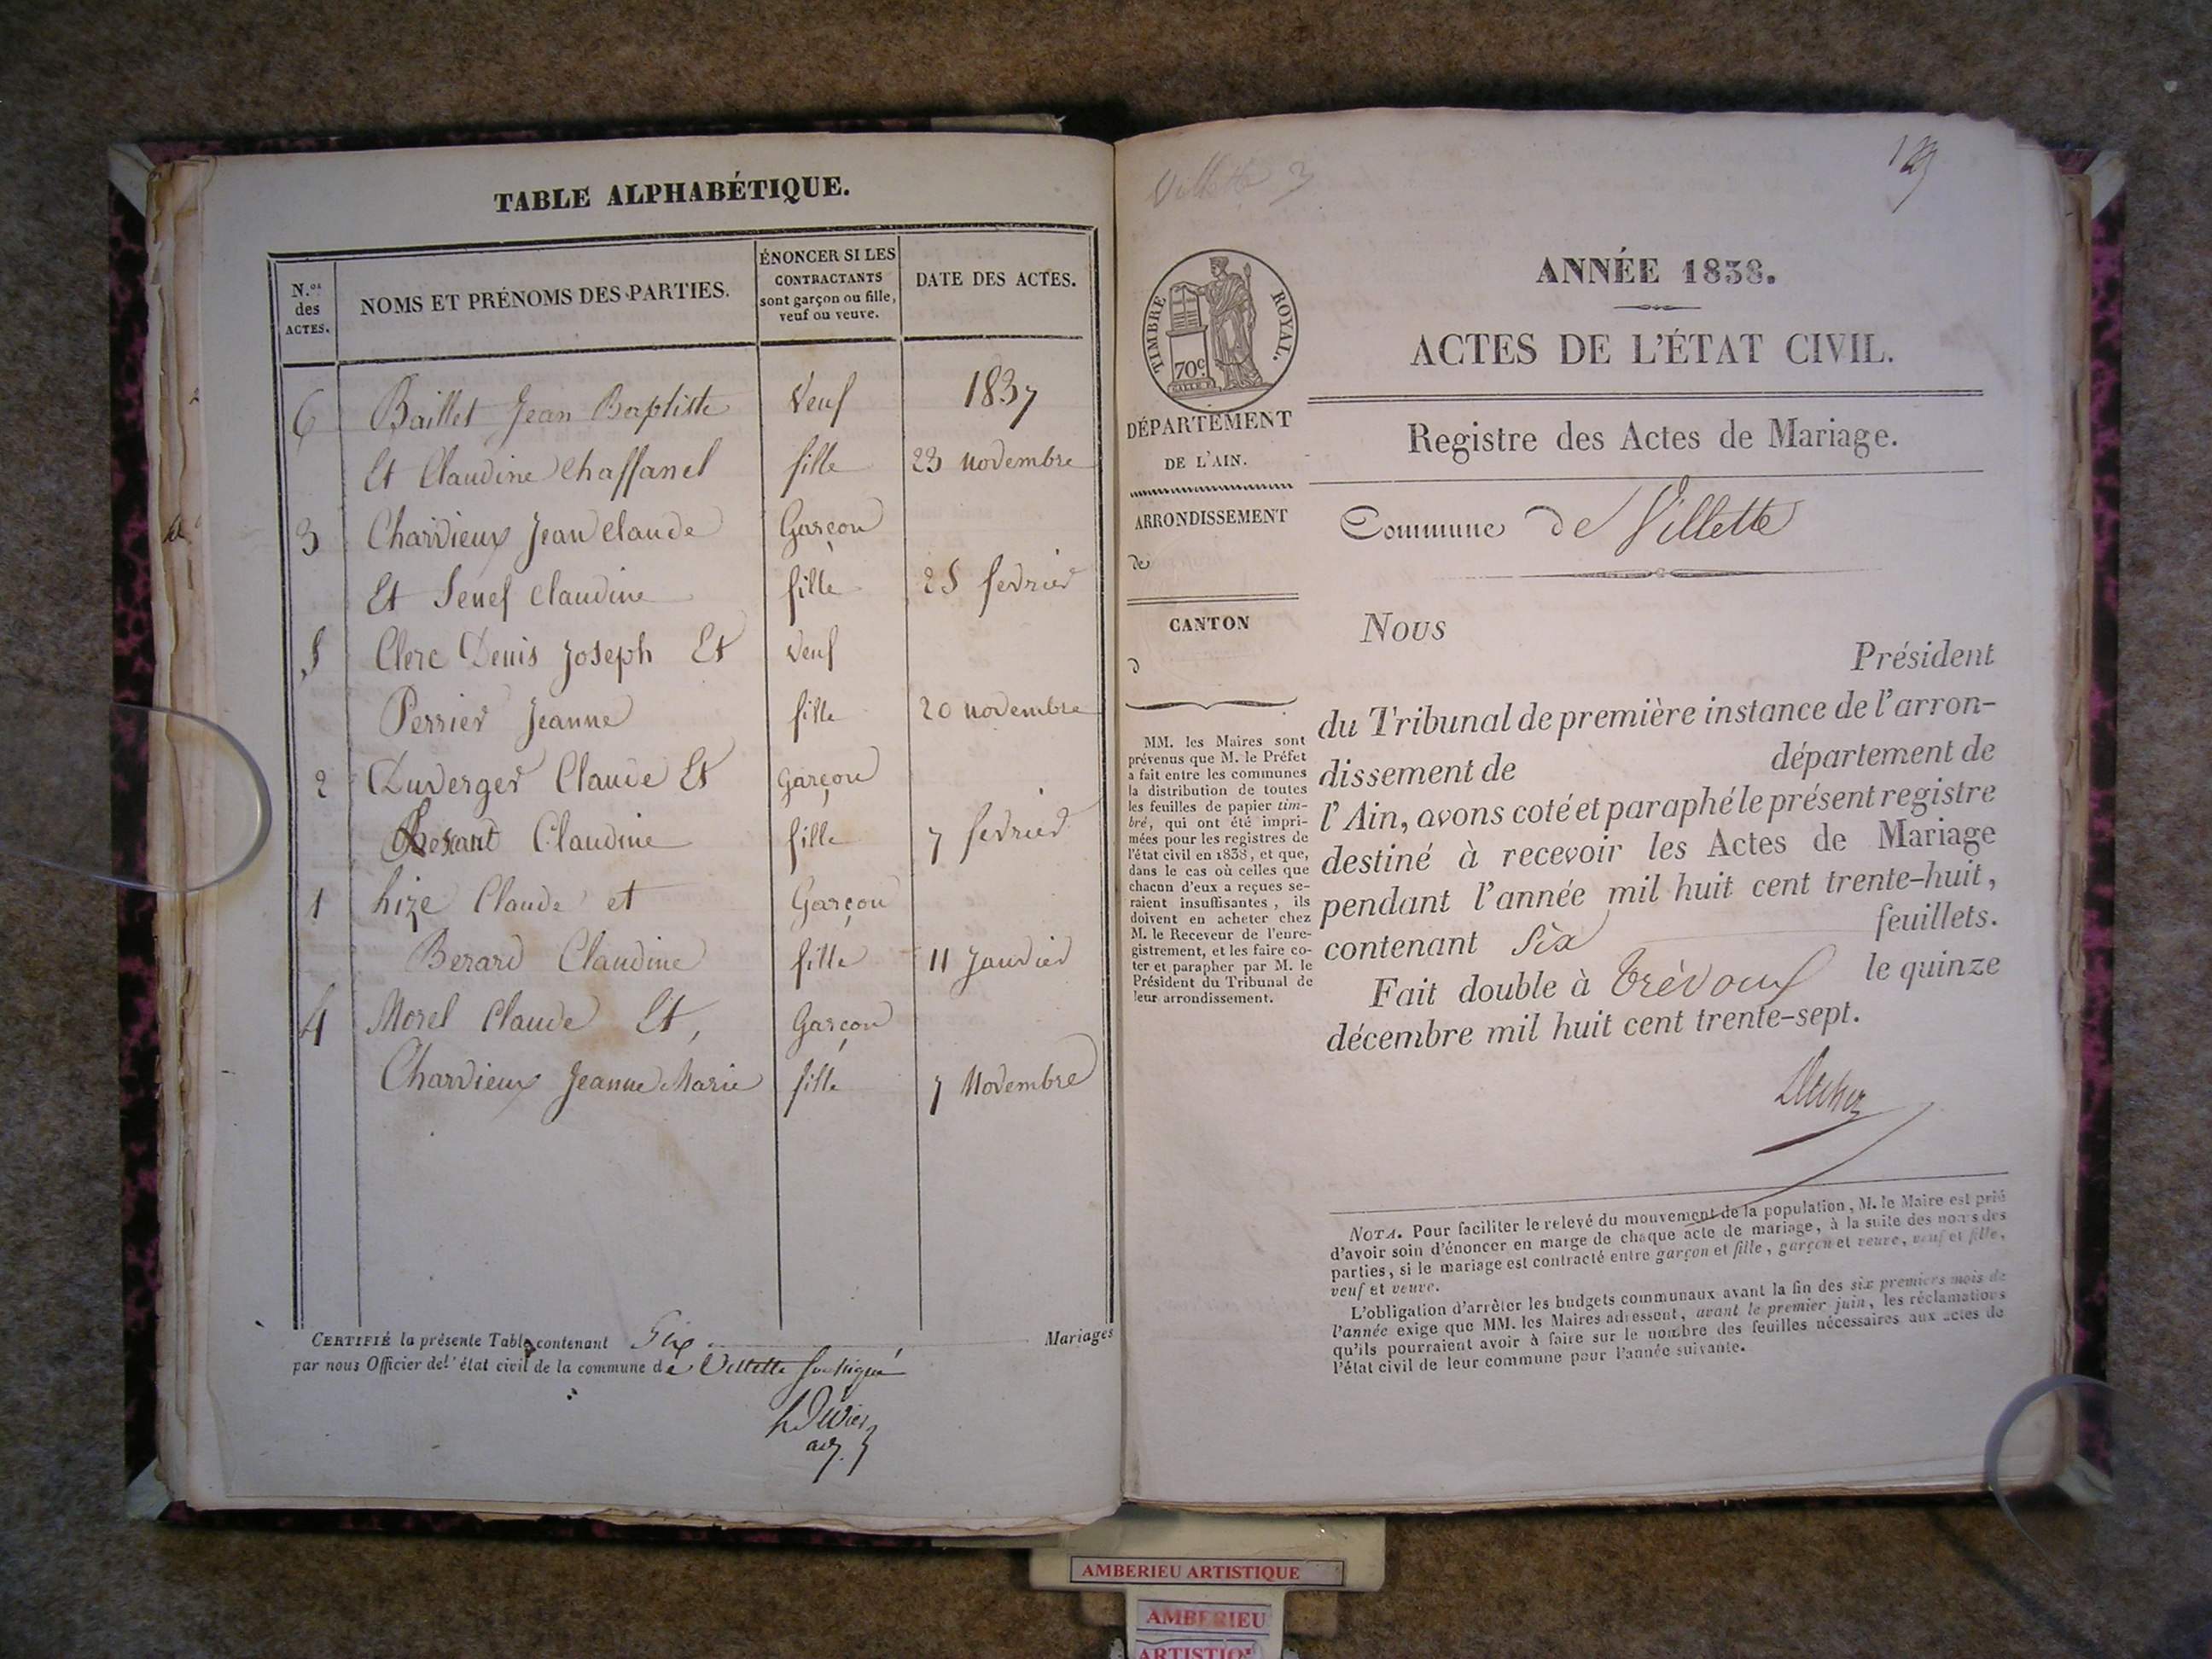 TABLE ALPHABÉTIQUE.
N.os des ACTES.
NOMS ET PRÉNOMS DES PARTIES.
ÉNONCER SI LES
CONTRACTANTS
sont garçon ou fille,
veuf ou veuve.
DATE DES ACTES.
6 Baillet Jean Baptiste Veuf 1837
Et Claudine Chaffanel fille 23 novembre
3 Chardieux Jean Claude Garçon
Et Claudine fille 28 fevrier
5 Clerc Denis Joseph Et Veuf
Perrier Jeanne fille 20 novembre
2 Duverger Claude Et garçon
Claudine fille 7 fevrier
1 Lize Claude et Garçon
Berard Claudine fille 11 Janvier
4 Morel Claude Et, Garçon
Chardieux Jeanne Marie fille 7 Novembre
CERTIFIÉ la présente Table contenant Six Mariages
par nous Officier de l'état civil de la commune de Villette soussigné
adj.
Villette 3
129
TIMBRE ROYAL.
70c
DÉPARTEMENT
DE L'AIN.
ARRONDISSEMENT
de
CANTON
d
MM. les Maires sont
prévenus que M. le Préfet
a fait entre les communes
la distribution de toutes
les feuilles de papier tim-
bré, qui ont été impri-
mées pour les registres de
l'état civil en 1838, et que,
dans le cas où celles que
chacun d'eux a reçues se-
raient insuffisantes, ils
doivent en acheter chez
M. le Receveur de l'enre-
gistrement, et les faire co-
ter et parapher par M. le
Président du Tribunal de
leur arrondissement.
ANNÉE 1838.
ACTES DE L'ÉTAT CIVIL.
Registre des Actes de Mariage.
Commune de Villette
Nous
Président
du Tribunal de première instance de l'arron-
dissement de département de
l'Ain, avons coté et paraphé le présent registre
destiné à recevoir les Actes de Mariage
pendant l'année mil huit cent trente-huit,
contenant Six feuillets.
Fait double à Trévoux le quinze
décembre mil huit cent trente-sept.
NOTA. Pour faciliter le relevé du mouvement de la population, M. le Maire est prié
d'avoir soin d'énoncer en marge de chaque acte de mariage, à la suite des noms des
parties, si le mariage est contracté entre garçon et fille, garçon et veuve, veuf et fille,
veuf et veuve.
L'obligation d'arrêter les budgets communaux avant la fin des six premiers mois de
l'année exige que MM. les Maires adressent, avant le premier juin, les réclamations
qu'ils pourraient avoir à faire sur le nombre des feuilles nécessaires aux actes de
l'état civil de leur commune pour l'année suivante.
AMBERIEU ARTISTIQUE
AMBERIEU
ARTISTIQ